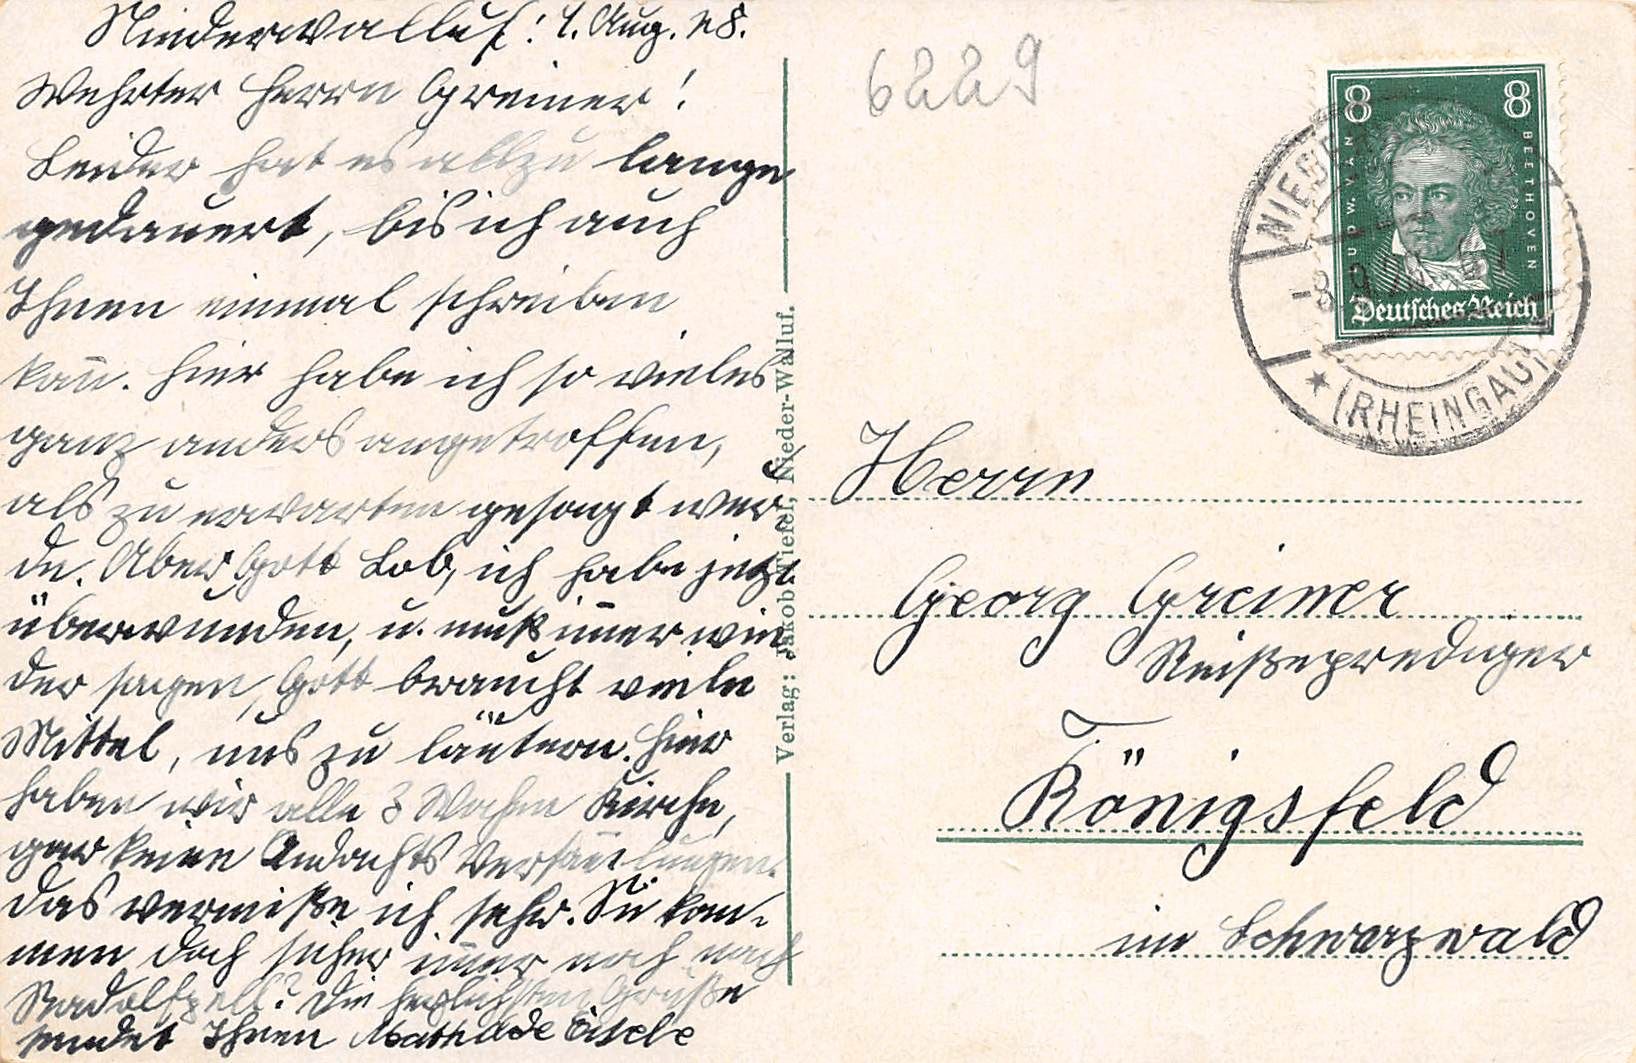 Niederwalluf: 1. Aug. 28.
Wehrter Herrn Greiner!
Leider hat es allzu lange
gedauert, bis ich auch
Ihnen einmal schreiben
kañ. Hier habe ich so vieles
ganz anders angetroffen,
als zu erwarten gesagt wer-
de. Aber Gott Lob, ich habe jetzt
überwunden, u. muß im̃er wie
der sagen, Gott braucht viele
Mittel, uns zu läutern. Hier
haben wir alle 3 Wochen Kirche,
gar keine Andachts Versam̃lungen.
das vermiße ich sehr. Sie kom-
men doch sicher im̃er noch nach
Radolfzell? Die herzlichsten Grüße
sendet Ihnen Mathilde Eisele
Verlag: Jakob Tiefel, Nieder-Walluf.
6229
8 8
LUDW. VAN BEETHOVEN
Deutsches Reich
NIEDER
(RHEINGAU)
Herrn
Georg Greiner
Reißeprediger
Königsfeld
im Schwarzwald